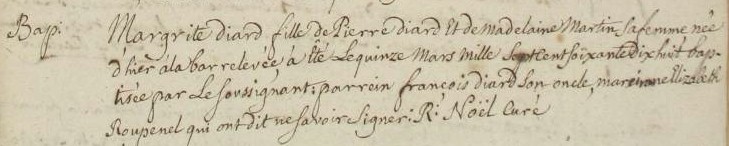 Bap: Margrite diard fille de Pierre diard Et de Madelaine Martin Safemme née
d'hier àla barrelevée à Eté Lequinze Mars mille Septcent soixante Dixhuit bap-
tisée par Le Soussignant: parrein françois diard Son oncle, mareinne Elizabeth
Roupenel qui ont dit ne savoir Signer: R. Noël Curé